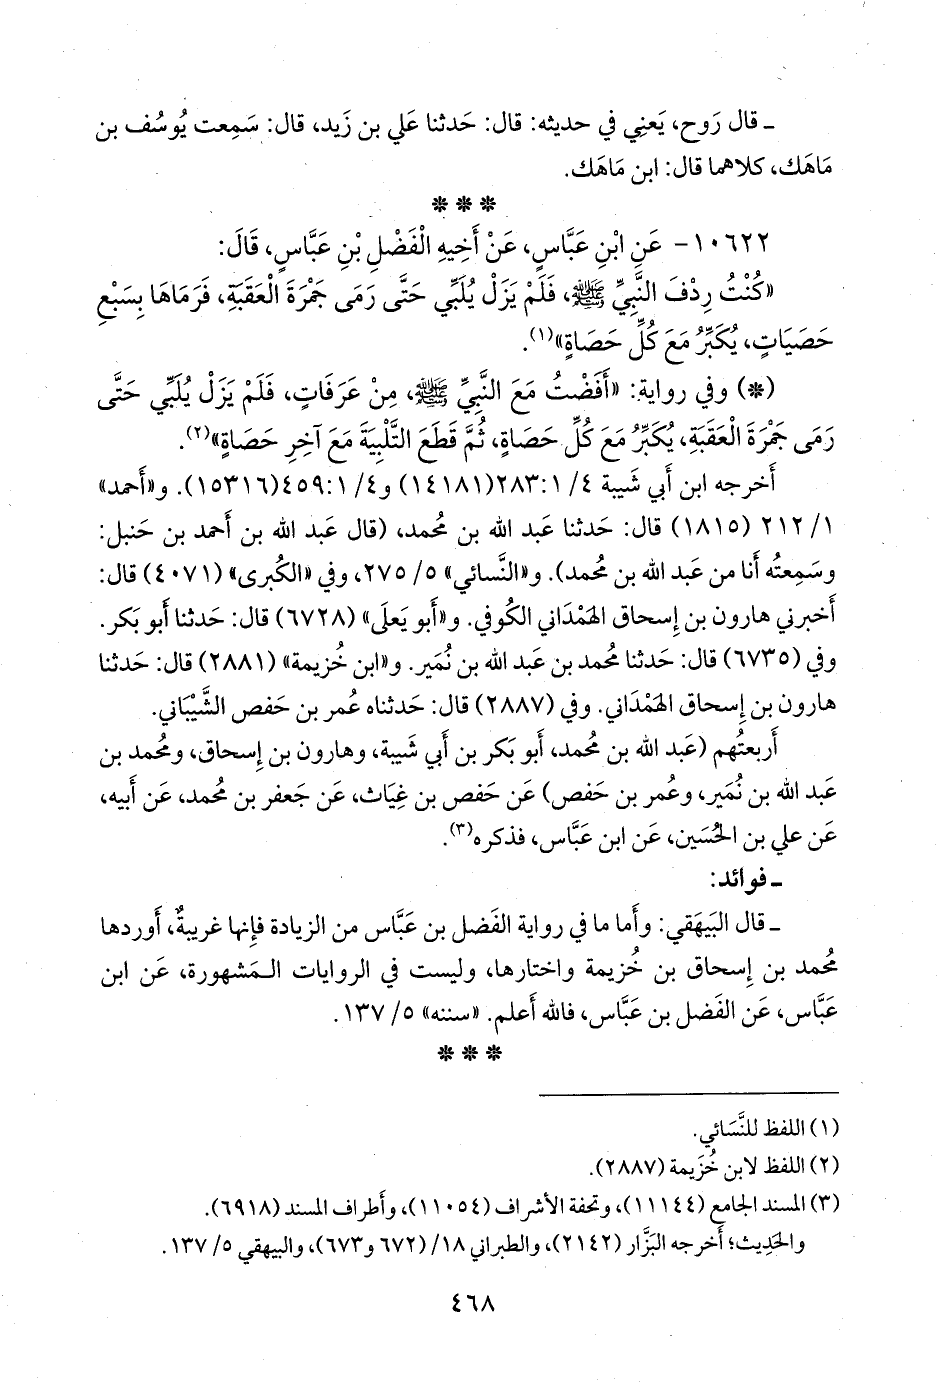 ـ قال رَوح، يَعنِي في حديثه: قال: حَدثنا عَلي بن زَيد، قال: سَمِعت يُوسُف بن
مَاهَك، كلاهما قال: ابن مَاهَك.
***
١٠٦٢٢- عَنِ ابْنِ عَبَّاسٍ، عَنْ أَخِيهِ الْفَضْلِ بْنِ عَبَّاسٍ، قَالَ:
«كُنْتُ رِدْفَ النَّبِيِّ ﷺ، فَلَمْ يَزَلْ يُلَبِّي حَتَّى رَمَى جَمْرَةَ الْعَقَبَةِ، فَرَمَاهَا بِسَبْعِ
حَصَيَاتٍ، يُكَبِّرُ مَعَ كُلِّ حَصَاةٍ»(١).
(*) وفي رواية: «أَفَضْتُ مَعَ النَّبِيِّ ﷺ، مِنْ عَرَفَاتٍ، فَلَمْ يَزَلْ يُلَبِّي حَتَّى
رَمَى جَمْرَةَ الْعَقَبَةِ، يُكَبِّرُ مَعَ كُلِّ حَصَاةٍ، ثُمَّ قَطَعَ التَّلْبِيَةَ مَعَ آخِرِ حَصَاةٍ»(٢).
أَخرجه ابن أَبي شَيبة ٤/ ١: ٢٨٣(١٤١٨١) و٤/ ١: ٤٥٩(١٥٣١٦). و«أَحمد»
١/ ٢١٢ (١٨١٥) قال: حَدثنا عَبد الله بن مُحمد، (قال عَبد الله بن أَحمد بن حَنبل:
وسَمِعتُه أَنا من عَبد الله بن مُحمد). و«النَّسائي» ٥/ ٢٧٥، وفي «الكُبرى» (٤٠٧١) قال:
أَخبرني هارون بن إِسحاق الهَمْدَاني الكُوفي. و«أَبو يَعلَى» (٦٧٢٨) قال: حَدثنا أَبو بَكر.
وفي (٦٧٣٥) قال: حَدثنا مُحمد بن عَبد الله بن نُمَير. و«ابن خُزيمة» (٢٨٨١) قال: حَدثنا
هارون بن إِسحاق الهَمْدَاني. وفي (٢٨٨٧) قال: حَدثناه عُمر بن حَفص الشَّيْبَاني.
أَربعتُهم (عَبد الله بن مُحمد، أَبو بَكر بن أَبي شَيبة، وهارون بن إِسحاق، ومُحمد بن
عَبد الله بن نُمَير، وعُمر بن حَفص) عَن حَفص بن غِيَاث، عَن جَعفر بن مُحمد، عَن أَبيه،
عَن علي بن الحُسَين، عَن ابن عَبَّاس، فذكره(٣).
ـ فوائد:
ـ قال البَيهَقي: وأَما ما في رواية الفَضل بن عَبَّاس من الزيادة فإِنها غريبةٌ، أَوردها
مُحمد بن إِسحاق بن خُزيمة واختارها، وليست في الروايات المَشهورة، عَن ابن
عَبَّاس، عَن الفَضل بن عَبَّاس، فالله أَعلم. «سننه» ٥/ ١٣٧.
***
(١) اللفظ للنَّسَائي.
(٢) اللفظ لابن خُزَيمة (٢٨٨٧).
(٣) المسند الجامع (١١١٤٤)، وتحفة الأشراف (١١٠٥٤)، وأطراف المسند (٦٩١٨).
والحَدِيث؛ أَخرجه البَزَّار (٢١٤٢)، والطبراني ١٨/ (٦٧٢ و٦٧٣)، والبيهقي ٥/ ١٣٧.
٤٦٨